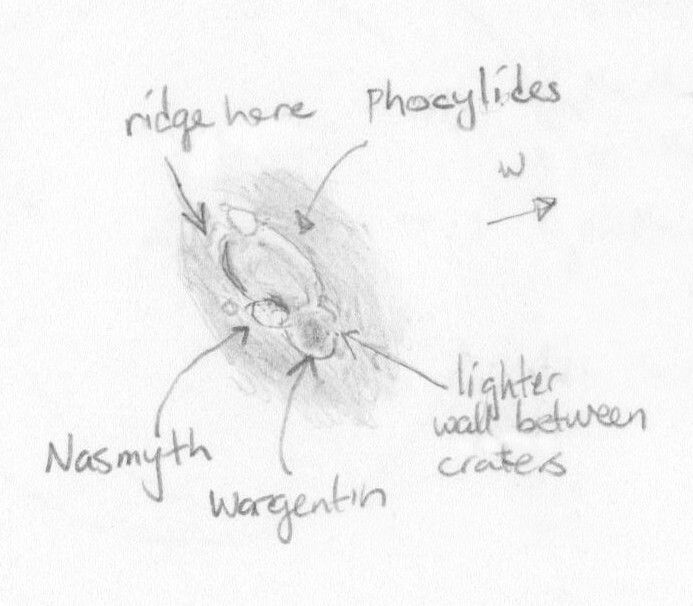 ridge here
Phocylides
W
lighter
wall between
craters
Nasmyth
Wargentin